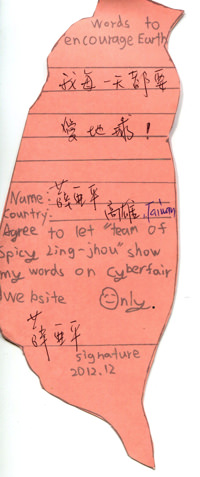 words to
encourage Earth
我每一天都要
愛地球!
Name: 薛亜平
Country: 高雄 Taiwan
Agree to let "team of
Spicy Ling-jhou" show
my words on Cyberfair
website Only.
薛亜平
signature
2012.12